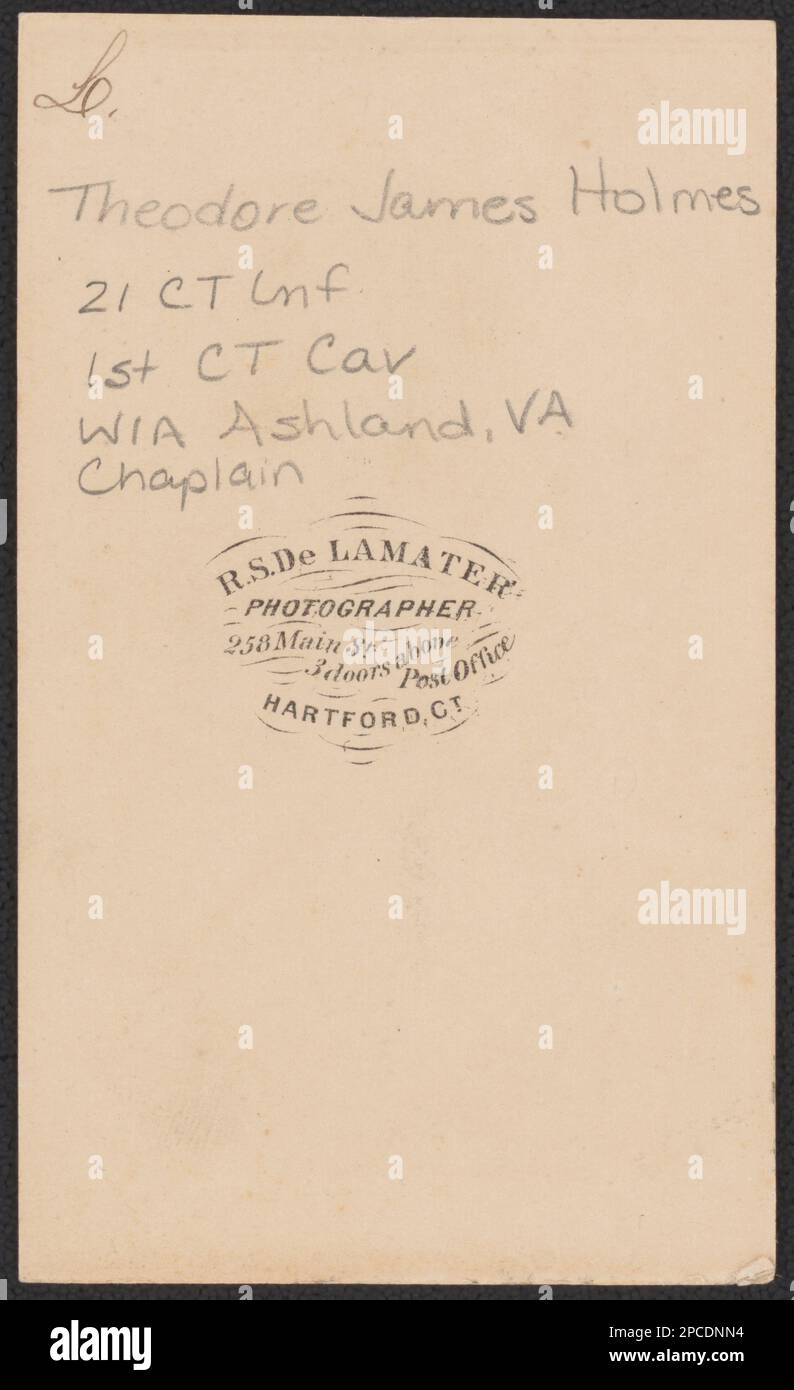 Theodore James Holmes
21 CT Inf
1st CT Cav
WIA Ashland, VA
Chaplain
R.S. De LAMATER
PHOTOGRAPHER
258 Main St.
3 doors above
Post Office
HARTFORD, CT
alamy
alamy
alamy
Image ID: 2PCDNN4
www.alamy.com